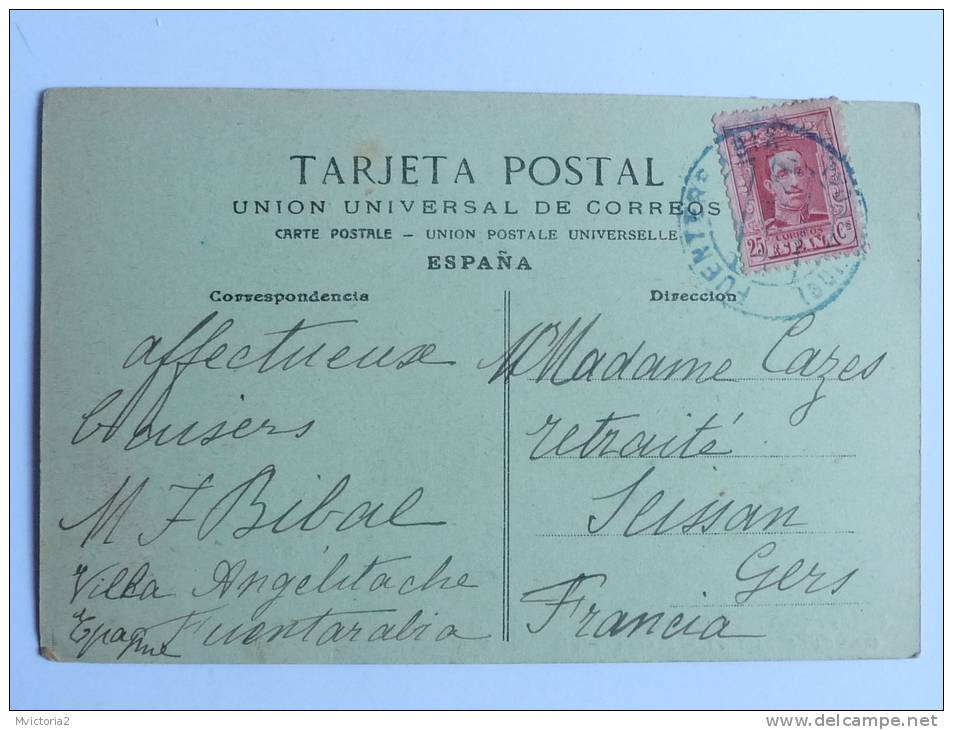 TARJETA POSTAL
UNION UNIVERSAL DE CORREOS
CARTE POSTALE – UNION POSTALE UNIVERSELLE
ESPAÑA
CORREOS
25 ESPAÑA Cs
Correspondencia
affectueux
baisers
M F Bibal
Villa Angélitache
Fuentarabia
Espagne
Direccion
Madame Cazes
retraité
Seissan
Gers
Francia
Mvictoria2
www.delcampe.net